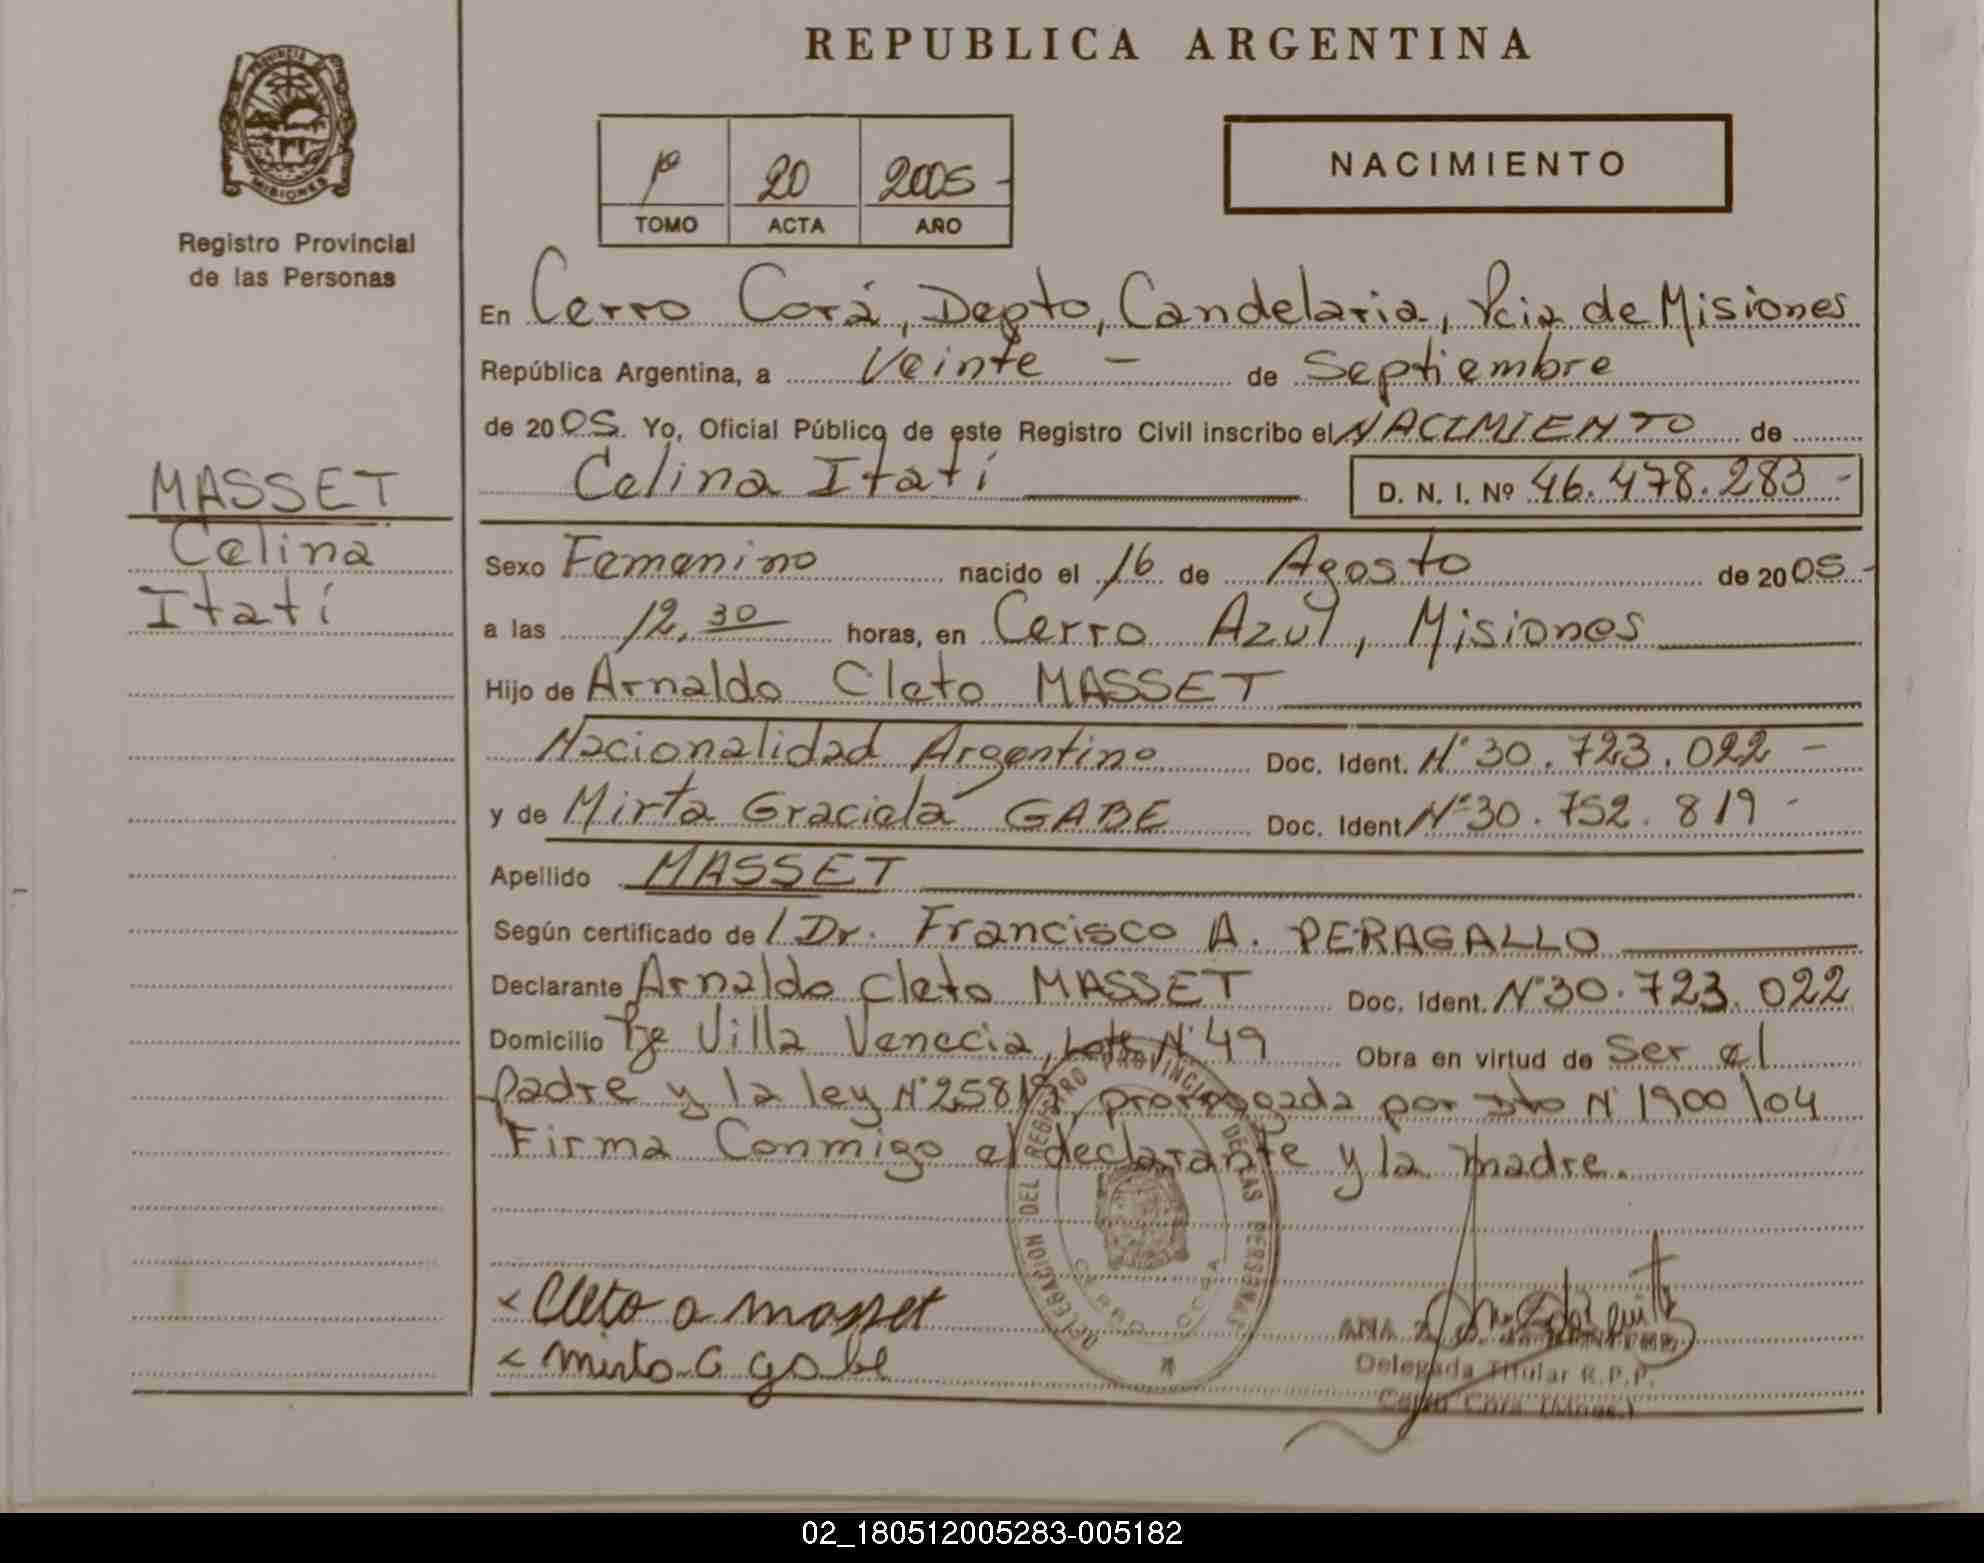 REPUBLICA ARGENTINA
PROVINCIA
MISIONES
Registro Provincial
de las Personas
1º 20 2005-
TOMO ACTA AÑO
NACIMIENTO
En Cerro Corá, Depto, Candelaria, Pcia de Misiones
República Argentina, a Veinte - de Septiembre
de 2005. Yo, Oficial Público de este Registro Civil inscribo el NACIMIENTO de
Celina Itatí D. N. I. Nº 46.478.283-
MASSET
Celina
Itatí
Sexo Femenino nacido el 16 de Agosto de 2005-
a las 12,30 horas, en Cerro Azul, Misiones
Hijo de Arnaldo Cleto MASSET
Nacionalidad Argentino Doc. Ident. Nº 30.723.022-
y de Mirta Graciela GABE Doc. Ident Nº 30.752.819-
Apellido MASSET
Según certificado de / Dr. Francisco A. PERAGALLO
Declarante Arnaldo Cleto MASSET Doc. Ident. Nº 30.723.022
Domicilio Pje Villa Venecia, Lote Nº 49 Obra en virtud de Ser el
padre y la ley Nº 25819, prorrogada por Dto Nº 1900/04
Firma Conmigo el declarante y la madre.
DELEGACION DEL REGISTRO PROVINCIAL DE LAS PERSONAS
CERRO CORA
Cleto a masset
mirta G gabe
ANA
Delegada Titular R.P.P.
Cerro Corá (Mnes.)
02_180512005283-005182